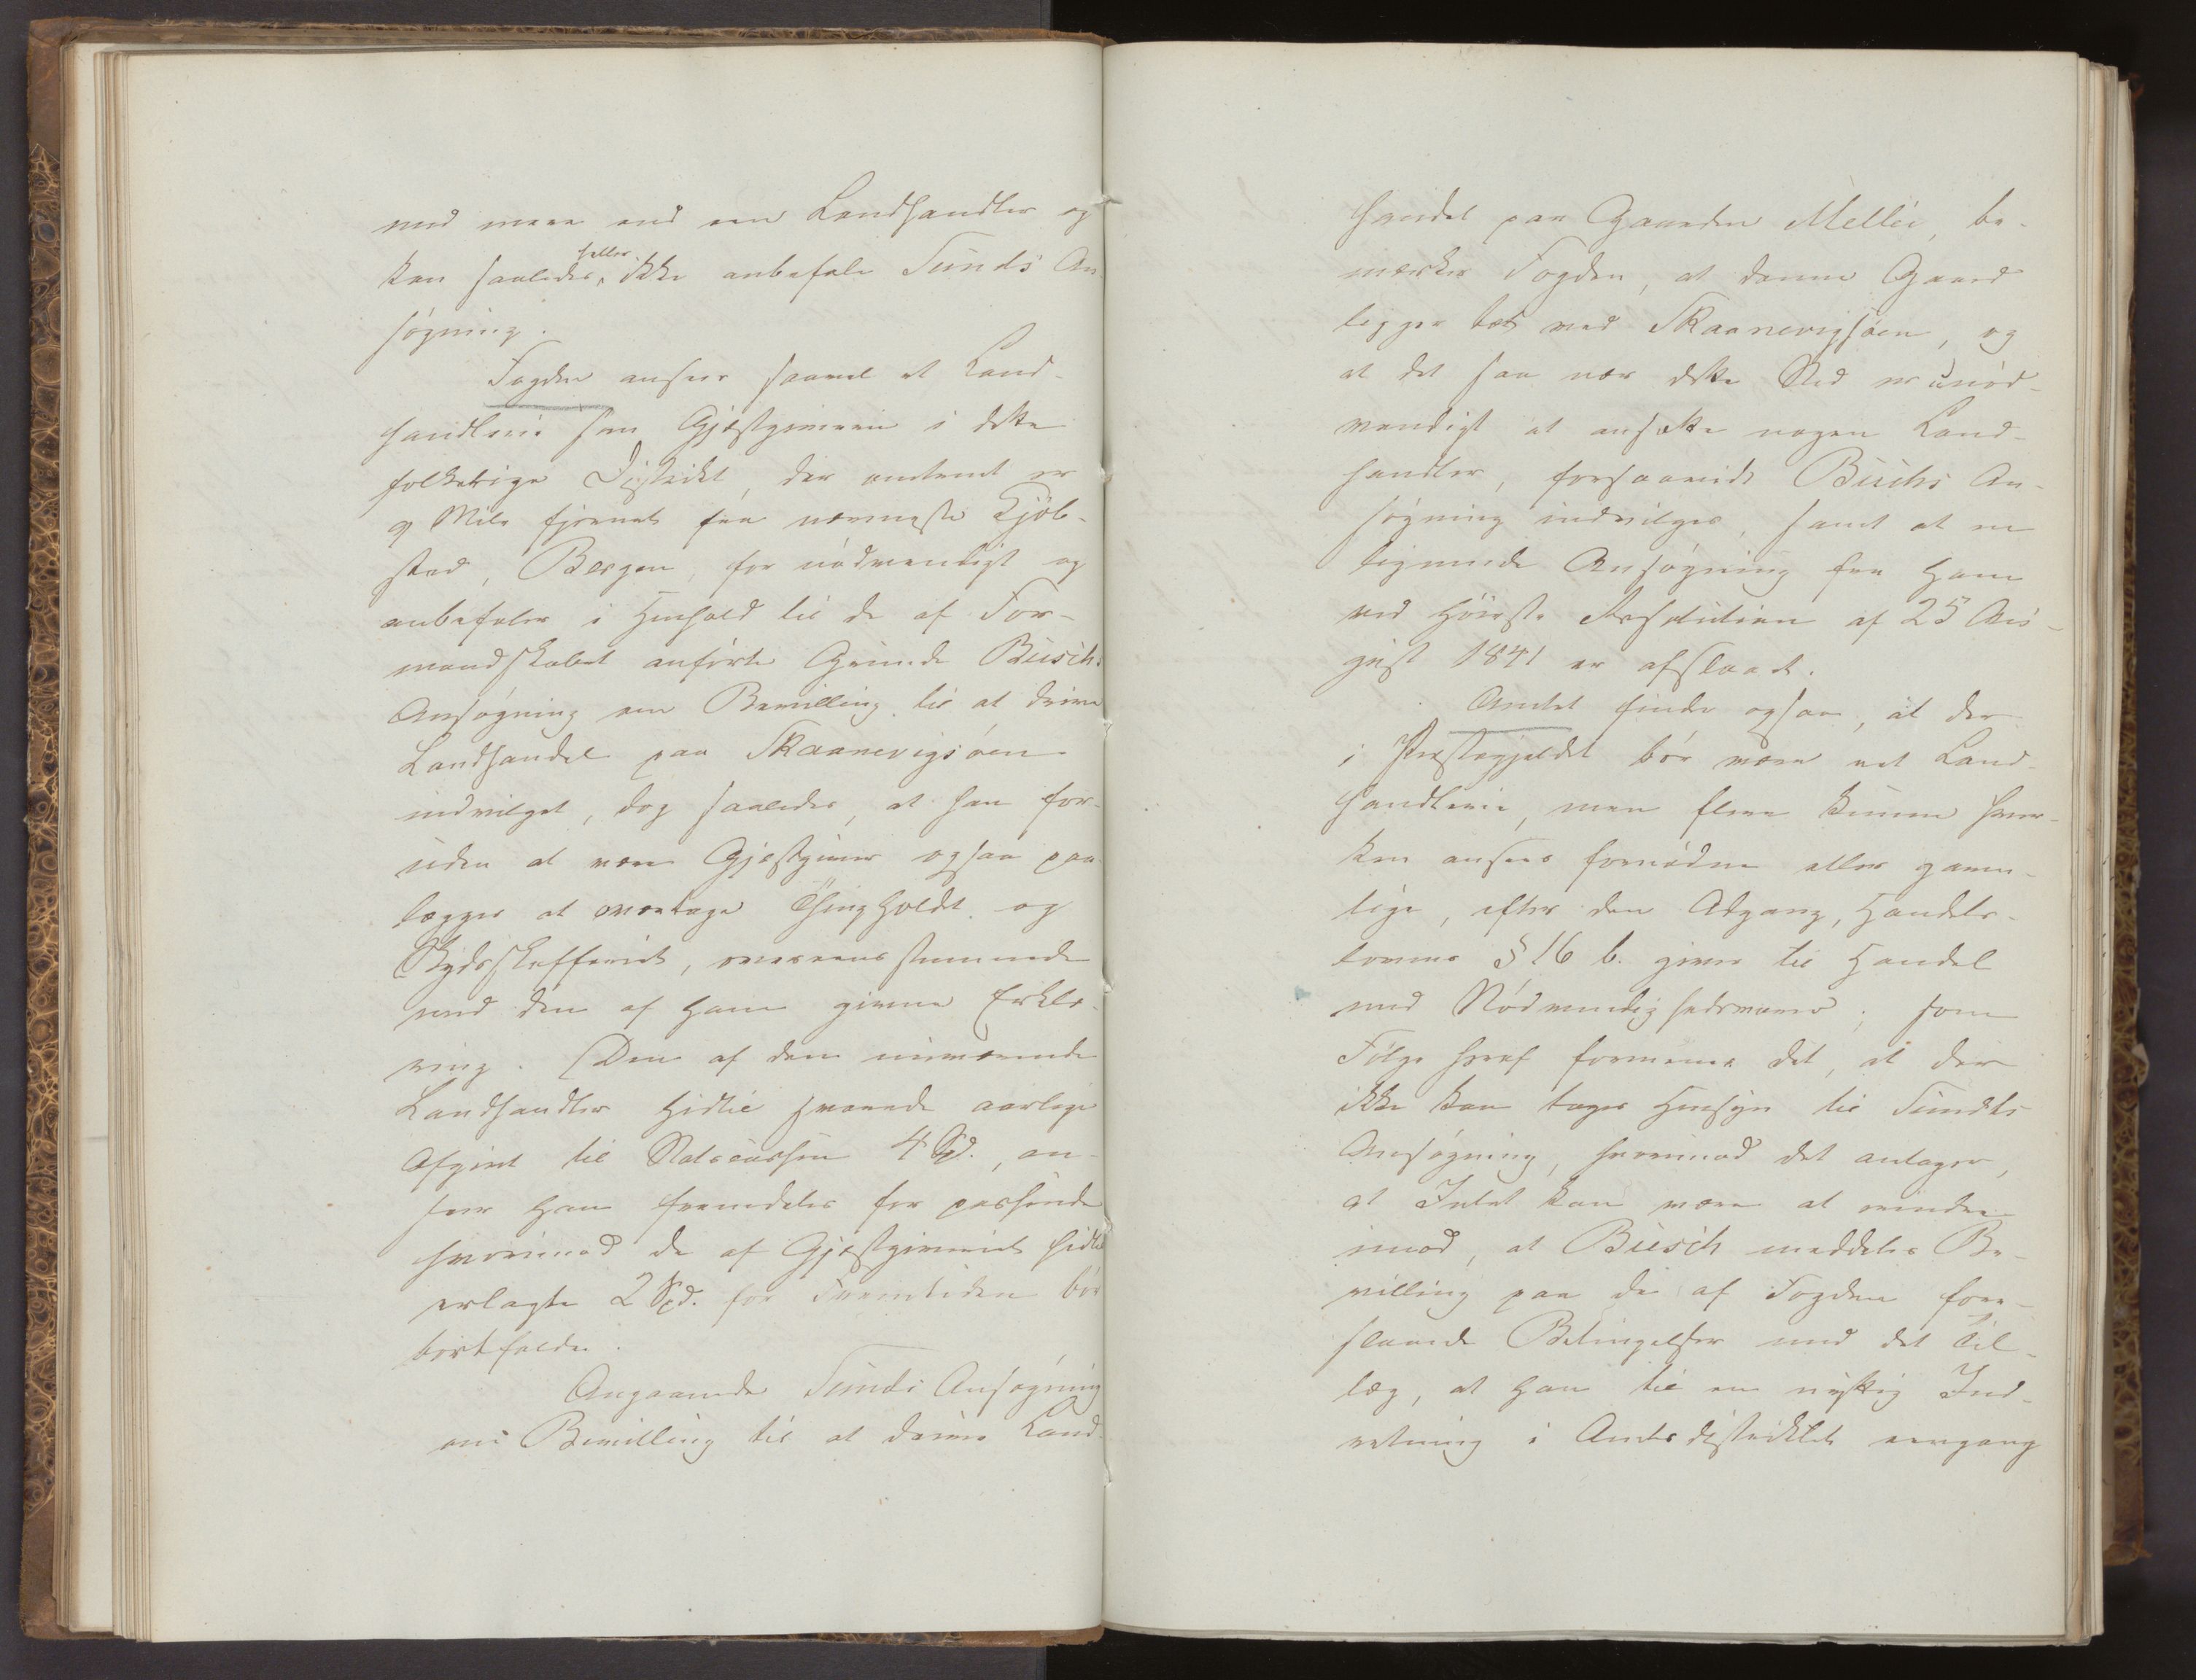 med mere end een Landhandler og
kan saaledes heller ikke anbefale Sunds An-
søgning.
Fogden anseer saavel et Land-
handlerie som Gjæstgiverie i dette
folkerige District, der omtrent er
9 Mile fjernet fra nærmeste Kjøb-
sted, Bergen, for nødvendigt og
anbefaler i Henhold til de af For-
mandskabet anførte Grunde Busch's
Ansøgning om Bevilling til at drive
Landhandel paa Skaanevigsøen
indvilget, dog saaledes, at han for-
uden at være Gjæstgiver ogsaa paa-
lægges at modtage Thinghold og
Skydsskafferiet, overeensstemmende
med den af ham givne Erklæ-
ring. Den af den nuværende
Landhandler hidtil svarede aarlige
Afgivt til Statscassen 4 Spd., an-
seer han fremdeles for passende
hvorimod de af Gjæstgiveriet hidtil
erlagte 2 Spd. for Fremtiden bør
bortfalde.
Angaaende Sunds Ansøgning
om Bevilling til at drive Land-
handel paa Gaarden Mellei, be-
mærker Fogden, at denne Gaard
ligger tæt ved Skaanevigsøen, og
at det saa nær dette Sted er unød-
vendigt at ansætte nogen Land-
handler, forsaavidt Buschs An-
søgning indvilges, samt at en
lignende Ansøgning fra ham
ved Høieste Resolution af 25 Au-
gust 1841 er afslaaet.
Amtet finder ogsaa, at der
i Præstegjeldet bør være eet Land-
handlerie, men flere kunne hver-
ken ansees fornødne eller gavn-
lige, efter den Adgang, Handels-
lovens § 16 b. giver til Handel
med Nødvendighedsvarer; som
Følge heraf formener det, at der
ikke kan tages Hensyn til Sundts
Ansøgning, hvorimod det antager,
at Intet kan være at erindre
imod, at Busch meddeles Be-
villing paa de af Fogden fore-
slaaede Betingelser med det Til-
læg, at han til en nyttig Ind-
retning i Amtsdistriktet eengang